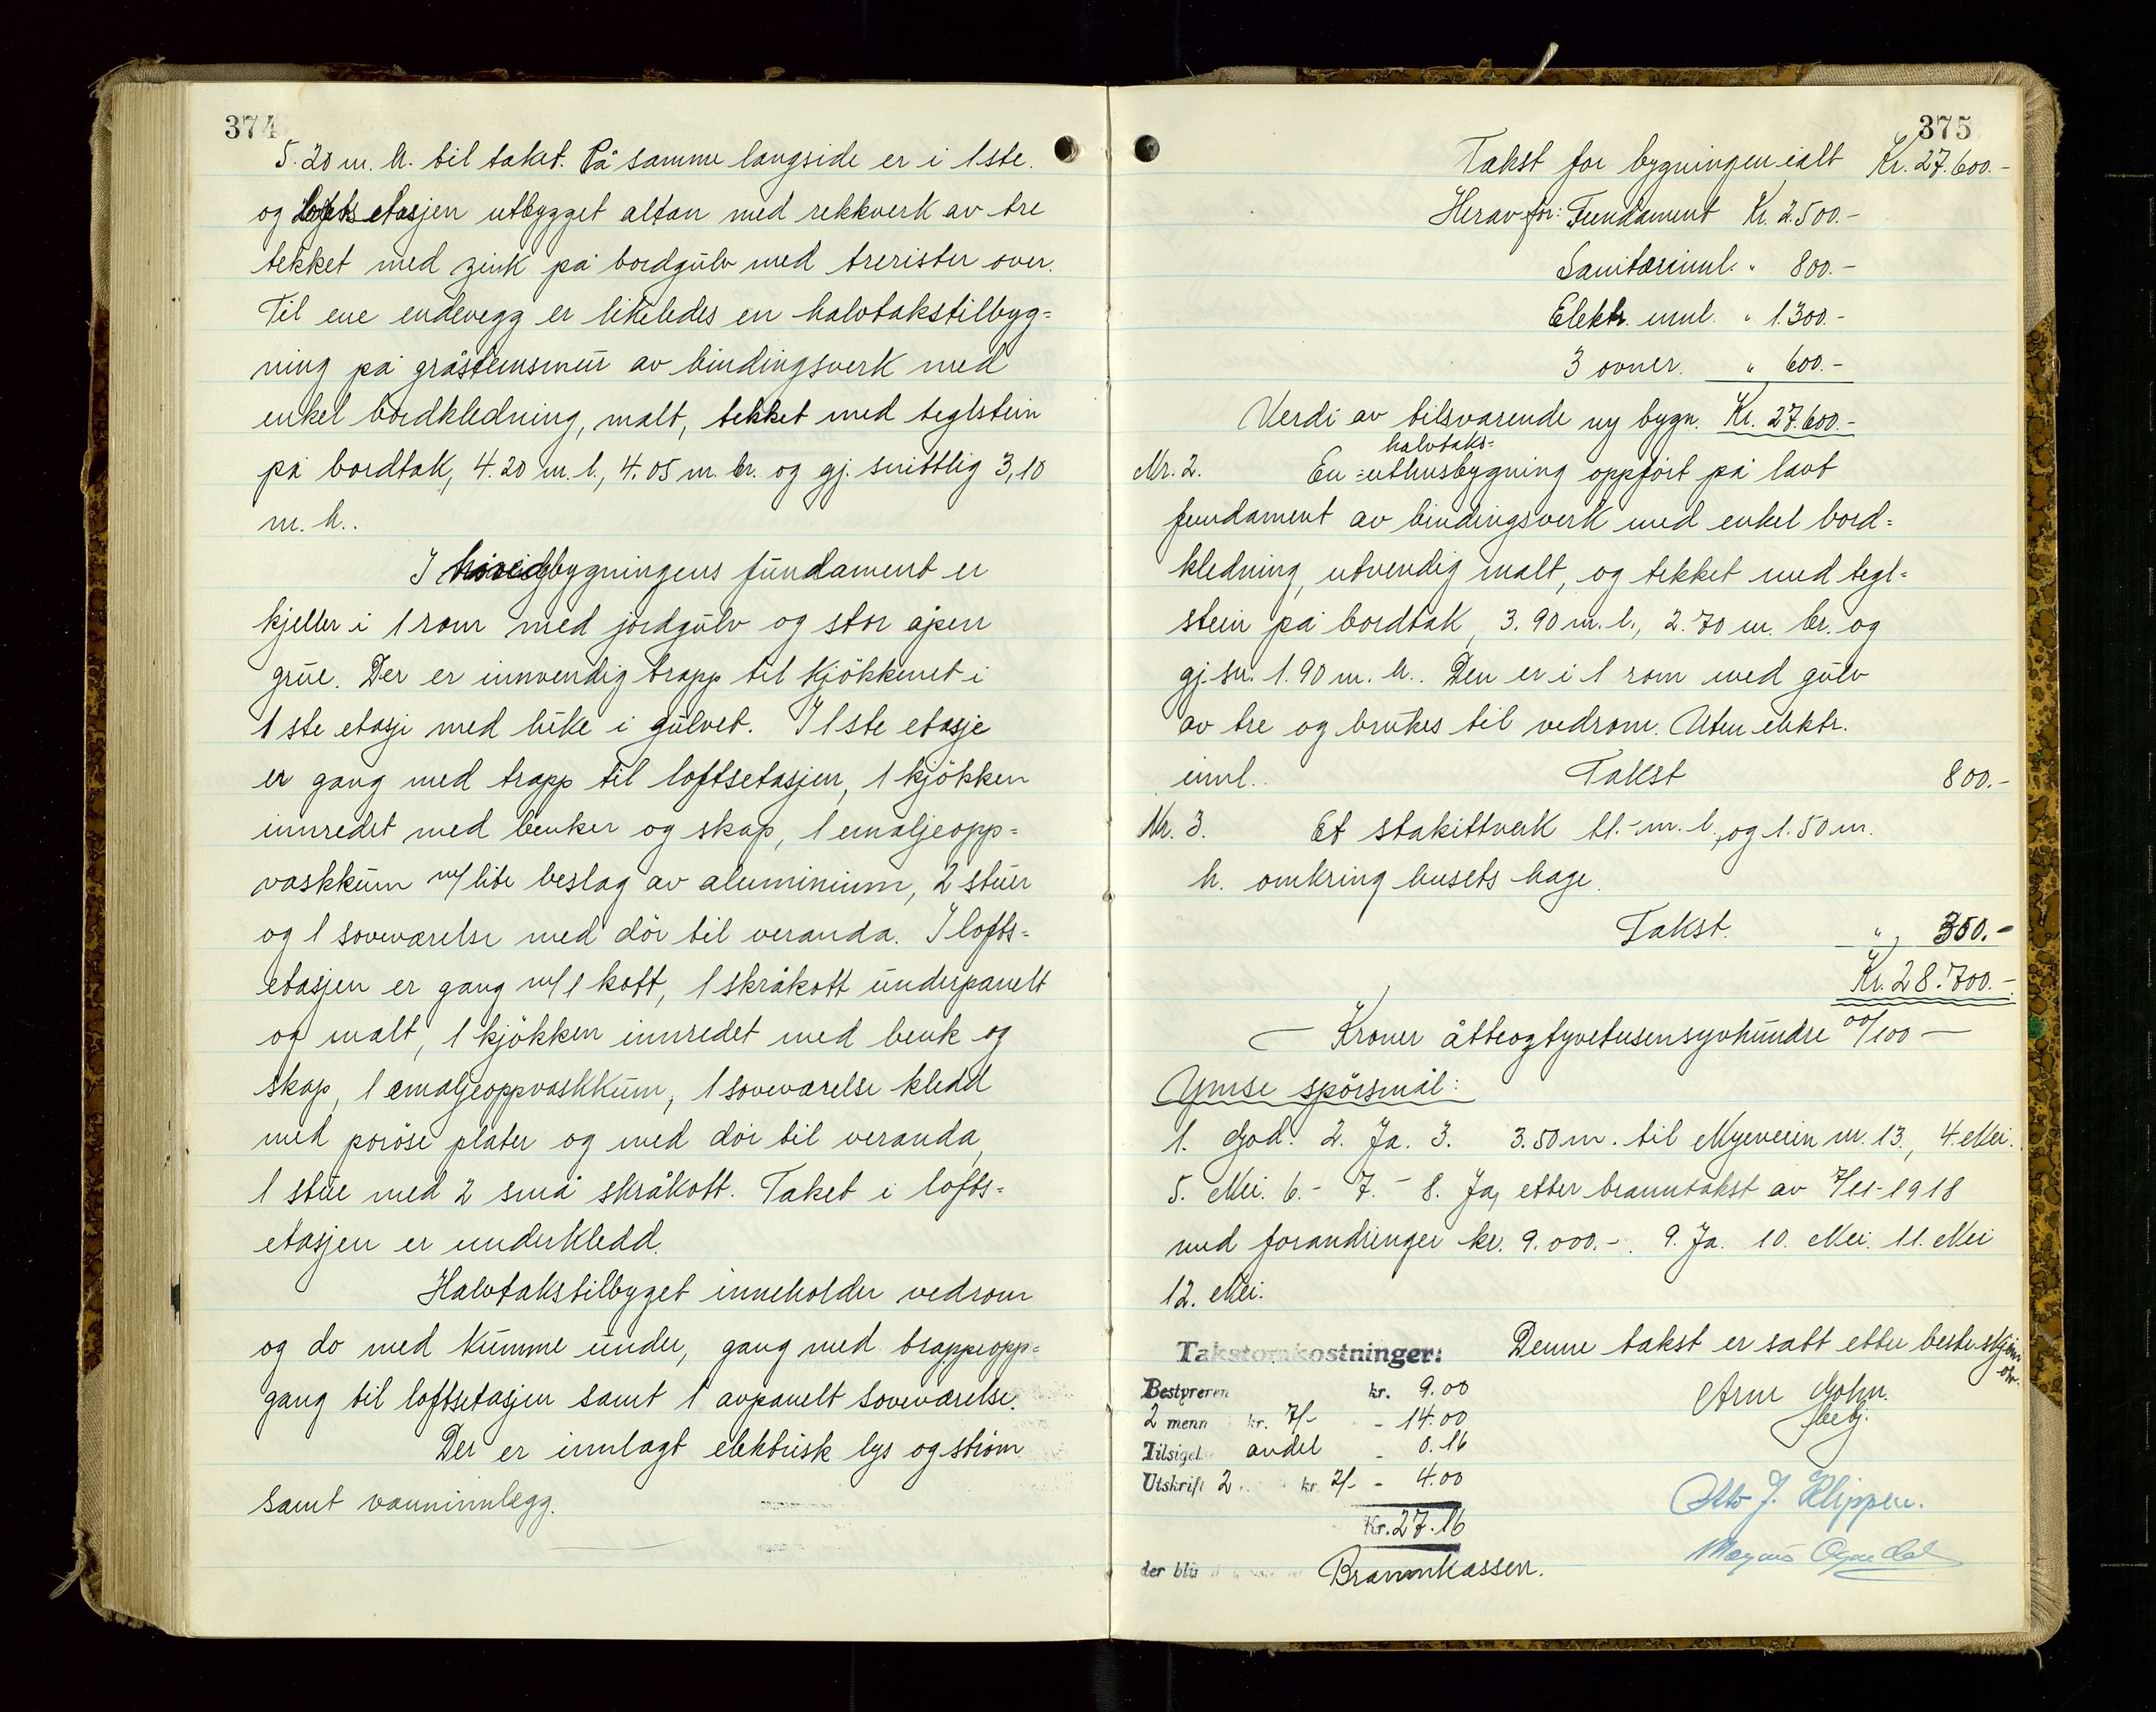 374
5.20 m. h. til taket. På samme langside er i 1ste.
og lofts etasjen utbygget altan med rekkverk av tre
tekket med zink på bordgulv med trerister over.
Til ene endevegg er likeledes en halvtakstilbyg=
ning på gråsteinsmur av bindingsverk med
enkel bordkledning, malt, tekket med teglstein
på bordtak, 4.20 m. l., 4.05 m. br. og gj. snittlig 3,10
m. h..
I hovedbygningens fundament er
kjeller i 1 rom med jordgulv og stor åpen
grue. Der er innvendig trapp til kjökkenet i
1 ste etasje med luke i gulvet. I 1ste etasje
er gang med trapp til loftsetasjen, 1 kjökken
innredet med benker og skap, 1 emaljeopp=
vaskkum m/ lite beslag av aluminium, 2 stuer
og 1 soveværelse med dör til veranda. I lofts=
etasjen er gang m/ 1 kott, 1 skråkott underpanelt
og malt, 1 kjökken innredet med benk og
skap, 1 emaljeoppvaskkum, 1 soveværelse kledd
med poröse plater og med dör til veranda,
1 stue med 2 små skråkott. Taket i lofts=
etasjen er underkledd.
Halvtakstilbyget inneholder vedrom
og do med kumme under, gang med trappeopp=
gang til loftsetasjen samt 1 avpanelt soveværelse.
Der er innlagt elektrisk lys og ström
samt vanninnlegg.
375
Takst for bygningen ialt Kr. 27.600.-
Herav for: Fundament Kr. 2.500.-
Sanitærinnl. " 800.-
Elektr. innl. " 1.300.-
3 ovner. " 600.-
Verdi av tilsvarende ny bygn. Kr. 27.600.-
halvtaks=
Nr. 2. En =uthusbygning oppfört på lavt
fundament av bindingsverk med enkel bord=
kledning, utvendig malt, og tekket med tegl=
stein på bordtak, 3.90 m. l., 2.70 m. br. og
gj.sn. 1.90 m. h.. Den er i 1 rom med gulv
av tre og brukes til vedrom. Uten elektr.
innl.. Takst 800.-
Nr. 3. Et stakittverk 11.- m. l., og 1.50 m.
h. omkring husets hage.
Takst. " 300.-
Kr. 28.700.-
— Kroner åtteogtyvetusensyvhundre 00/100 —
Ymse spörsmål:
1. God. 2. Ja. 3. 3.50 m. til Myeveien nr. 13., 4. Nei.
5. Nei. 6.- 7.- 8. Ja, etter branntakst av 7/11-1918
med forandringer kr. 9.000.-. 9. Ja. 10. Nei. 11. Nei
12. Nei.
Takstomkostninger: Denne takst er satt etter beste skjönn
Bestyreren kr. 9.00
2 menn kr. 7/- - 14.00
Tilsigel. andel - 0.16
Utskrift 2 kr. 2/- - 4.00
Kr. 27.16
der bli Brannkassen.
Arne
Otto J. Klippen.
Magnus